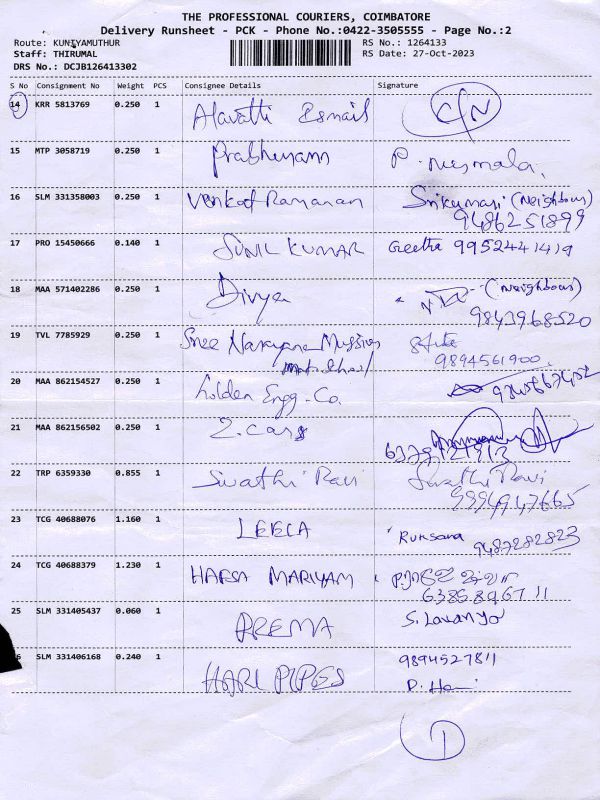 THE PROFESSIONAL COURIERS, COIMBATORE
Delivery Runsheet - PCK - Phone No.:0422-3505555 - Page No.:2
Route: KUNIYAMUTHUR RS No.: 1264133
Staff: THIRUMAL RS Date: 27-Oct-2023
DRS No.: DCJB126413302
S No Consignment No Weight PCS Consignee Details Signature
14 KRR 5813769 0.250 1 Alavatti Esmail C/N
15 MTP 3058719 0.250 1 P. Nirmala.
16 SLM 331358003 0.250 1 Venkat Ramanan Srikumari (Neighbour)
9486251899
17 PRO 15450666 0.140 1 SUNIL KUMAR Geetha 9952441419
18 MAA 571402286 0.250 1 Divya (Neighbour)
9843968520
19 TVL 7785929 0.250 1 Sree Narayana Mission
9894561900.
20 MAA 862154527 0.250 1 Golden Engg. Co.
21 MAA 862156502 0.250 1 Z. Cars
22 TRP 6359330 0.855 1 Swathi Ravi Swathi Ravi
9994947665
23 TCG 40688076 1.160 1 LEELA Ruksana 9487282823
24 TCG 40688379 1.230 1 HAFSA MARIYAM
25 SLM 331405437 0.060 1 PREMA S. Lavanya
6 SLM 331406168 0.240 1 HARI PIPES 9894527811